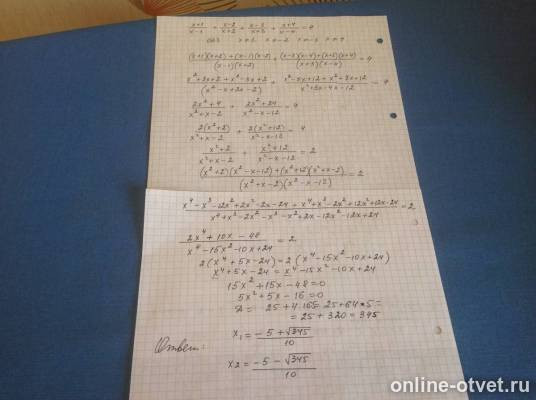 (x+1)/(x-1) + (x-2)/(x+2) + (x-3)/(x+3) + (x+4)/(x-4) = 4
((x+1)(x+2)+(x-1)(x-2))/((x-1)(x+2)) + ((x-3)(x-4)+(x+3)(x+4))/((x+3)(x-4)) = 4
(x²+3x+2+x²-3x+2)/(x²-x+2x-2) + (x²-7x+12+x²+7x+12)/(x²+3x-4x-12) = 4
(2x²+4)/(x²+x-2) + (2x²+24)/(x²-x-12) = 4
2(x²+2)/(x²+x-2) + 2(x²+12)/(x²-x-12) = 4
(x²+2)/(x²+x-2) + (x²+12)/(x²-x-12) = 2
((x²+2)(x²-x-12)+(x²+12)(x²+x-2))/((x²+x-2)(x²-x-12)) = 2
(x⁴-x³-12x²+2x²-2x-24+x⁴+x³-2x²+12x²+12x-24)/(x⁴+x³-2x²-x³-x²+2x-12x²-12x+24) = 2
(2x⁴+10x-48)/(x⁴-15x²-10x+24) = 2
2(x⁴+5x-24)=2(x⁴-15x²-10x+24)
x⁴+5x-24=x⁴-15x²-10x+24
15x²+15x-48=0
5x²+5x-16=0
= 25+64*5=
= 25+320=345
x₁ = (-5+√345)/10
Ответ:
x₂ = (-5-√345)/10
online-otvet.ru